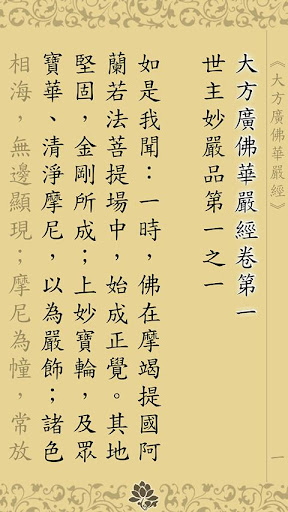 《大方廣佛華嚴經》
一
大方廣佛華嚴經卷第一
世主妙嚴品第一之一
如是我聞：一時，佛在摩竭提國阿
蘭若法菩提場中，始成正覺。其地
堅固，金剛所成；上妙寶輪，及眾
寶華、清淨摩尼，以為嚴飾；諸色
相海，無邊顯現；摩尼為幢，常放